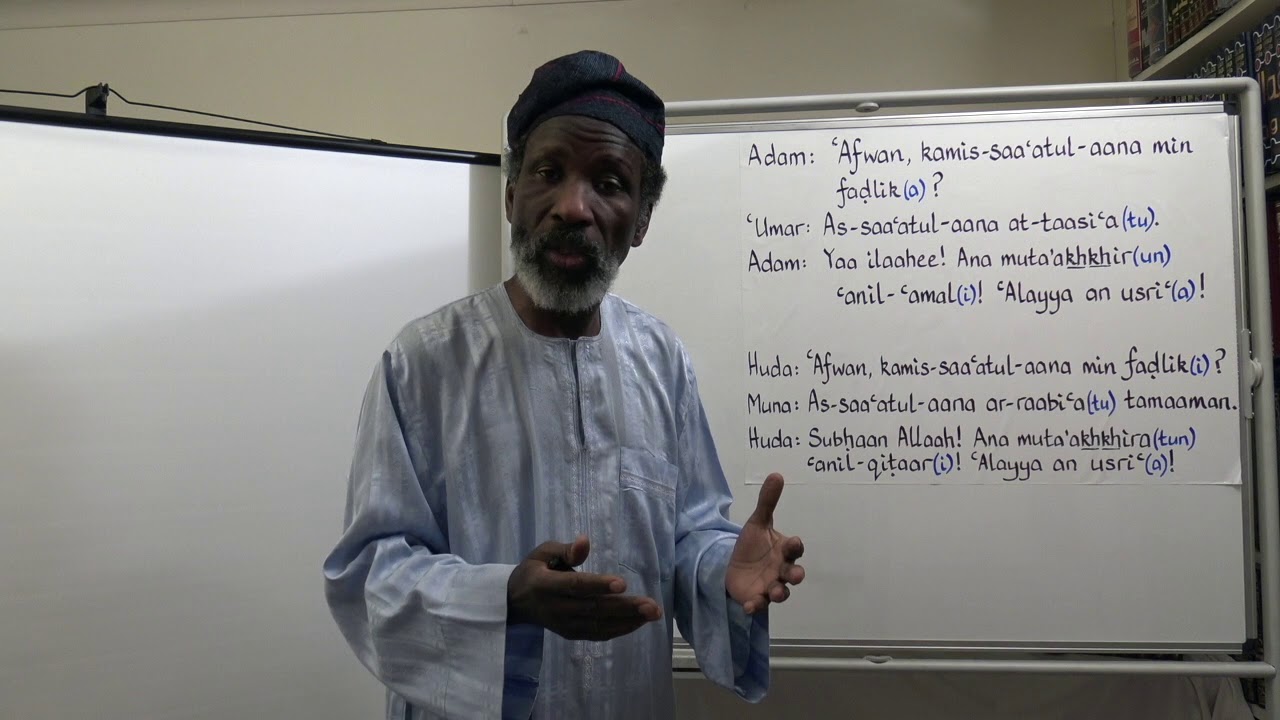 Adam: ʿAfwan, kamis-saaʿatul-aana min
faḍlik(a)?
ʿUmar: As-saaʿatul-aana at-taasiʿa(tu).
Adam: Yaa ilaahee! Ana muta'akhkhir(un)
ʿanil-ʿamal(i)! ʿAlayya an usriʿ(a)!
Huda: ʿAfwan, kamis-saaʿatul-aana min faḍlik(i)?
Muna: As-saaʿatul-aana ar-raabiʿa(tu) tamaaman.
Huda: Subḥaan Allaah! Ana muta'akhkhira(tun)
ʿanil-qiṭaar(i)! ʿAlayya an usriʿ(a)!